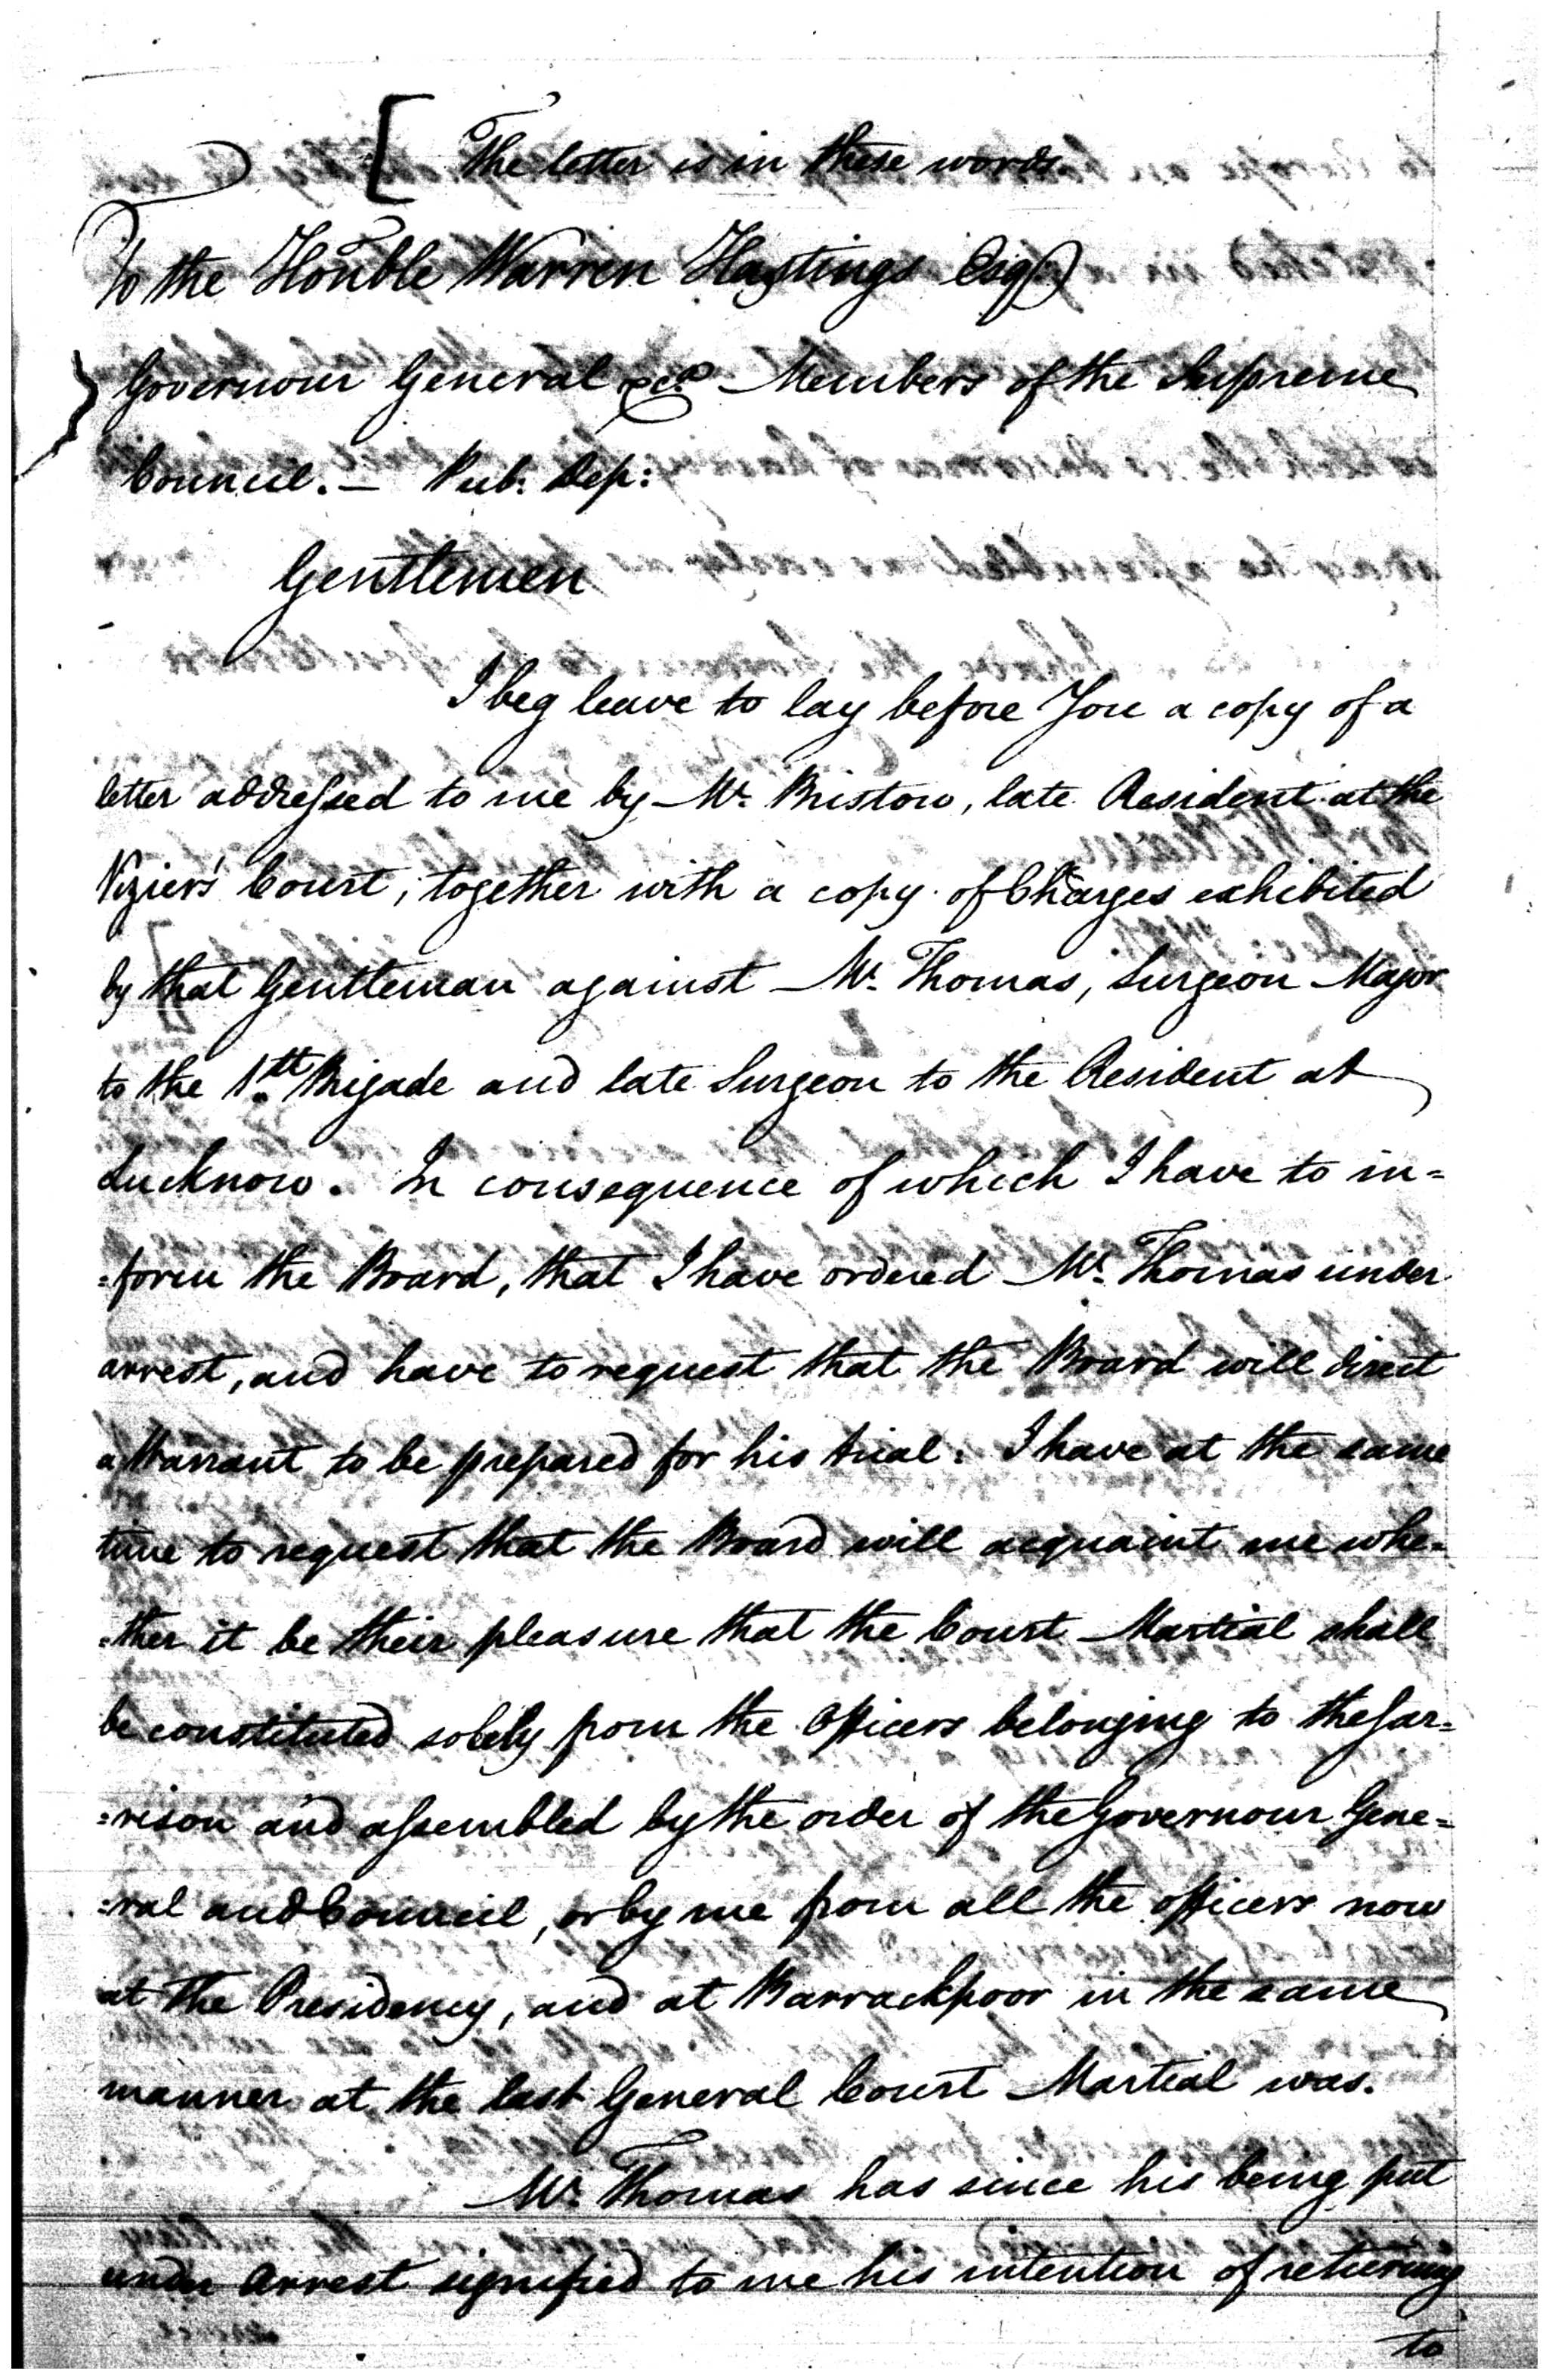 [ The letter is in these words.
To the Hon'ble Warren Hastings Esqr.
Governour General &ca. Members of the Supreme
Council. — Pub. Dep:
Gentlemen
I beg leave to lay before You a copy of a
letter addressed to me by Mr. Bristow, late Resident at the
Vizier's Court, together with a copy of Charges exhibited
by that Gentleman against Mr. Thomas, Surgeon Major
to the 1th. Brigade and late Surgeon to the Resident at
Lucknow. In consequence of which I have to in=
=form the Board, that I have ordered Mr. Thomas under
arrest, and have to request that the Board will direct
a Warrant to be prepared for his trial. I have at the same
time to request that the Board will acquaint me whe=
=ther it be their pleasure that the Court Martial shall
be constituted solely from the Officers belonging to the Gar=
=rison and assembled by the order of the Governour Gene=
=ral and Council, or by me from all the officers now
at the Presidency, and at Barrackpoor in the same
manner at the last General Court Martial was.
Mr. Thomas has since his being put
under arrest signified to me his intention of returning
to